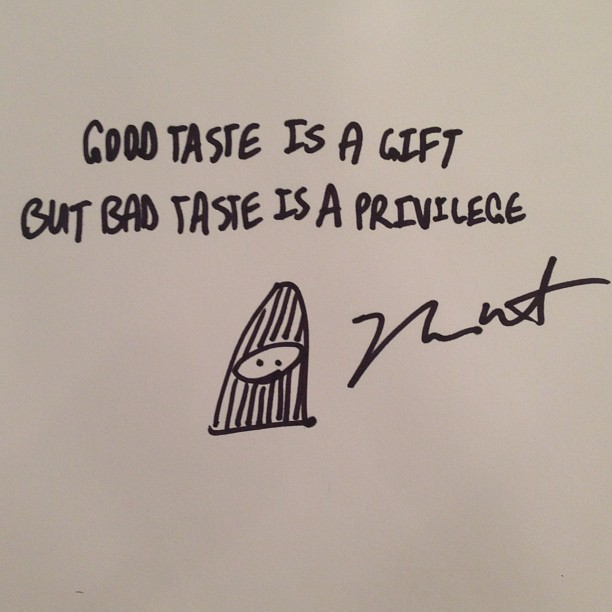 GOOD TASTE IS A GIFT
BUT BAD TASTE IS A PRIVILEGE